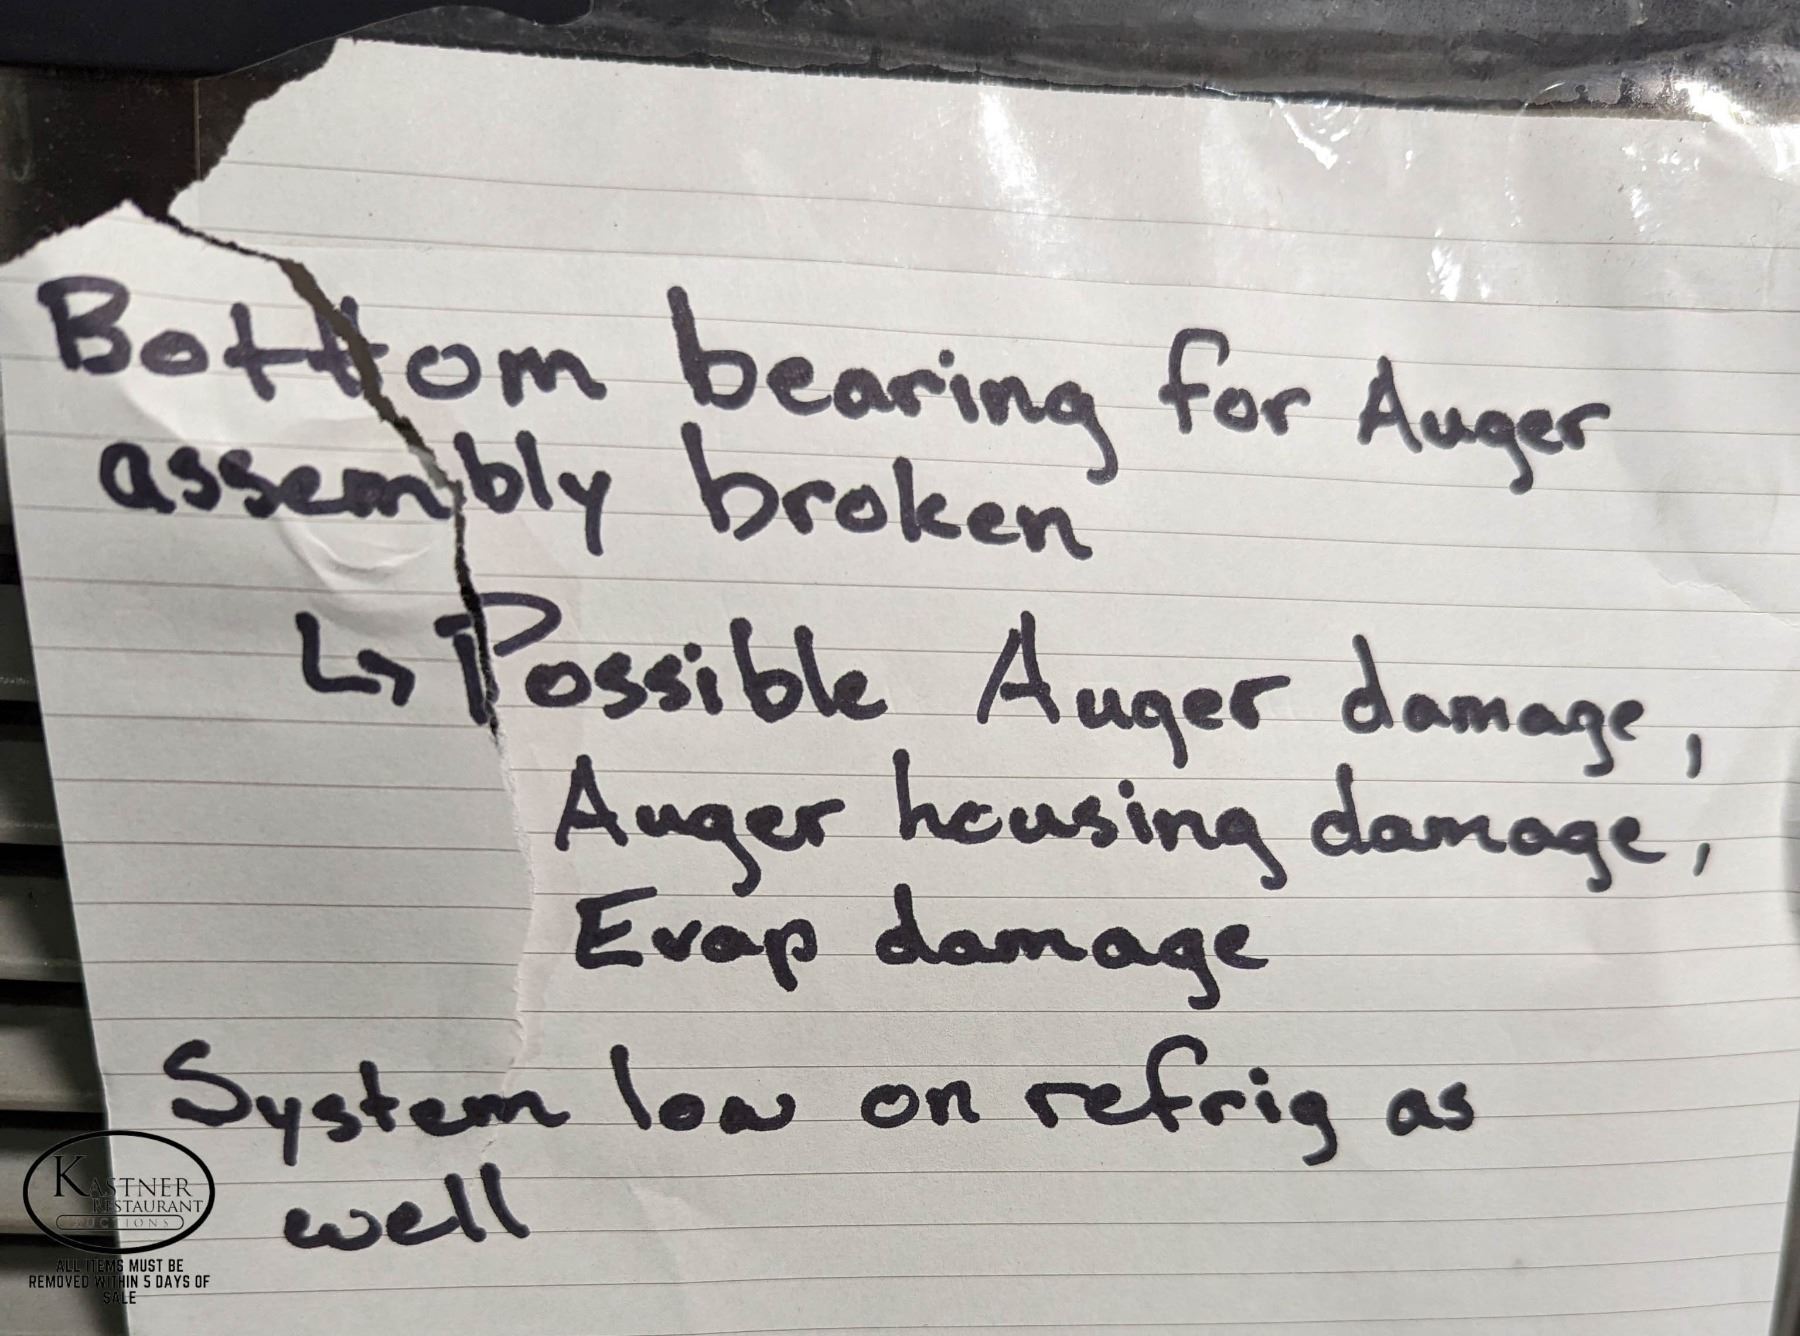 Bottom bearing for Auger
assembly broken
↳ Possible Auger damage,
Auger housing damage,
Evap damage
System low on refrig as
well
KASTNER
RESTAURANT
AUCTIONS
ALL ITEMS MUST BE
REMOVED WITHIN 5 DAYS OF
SALE